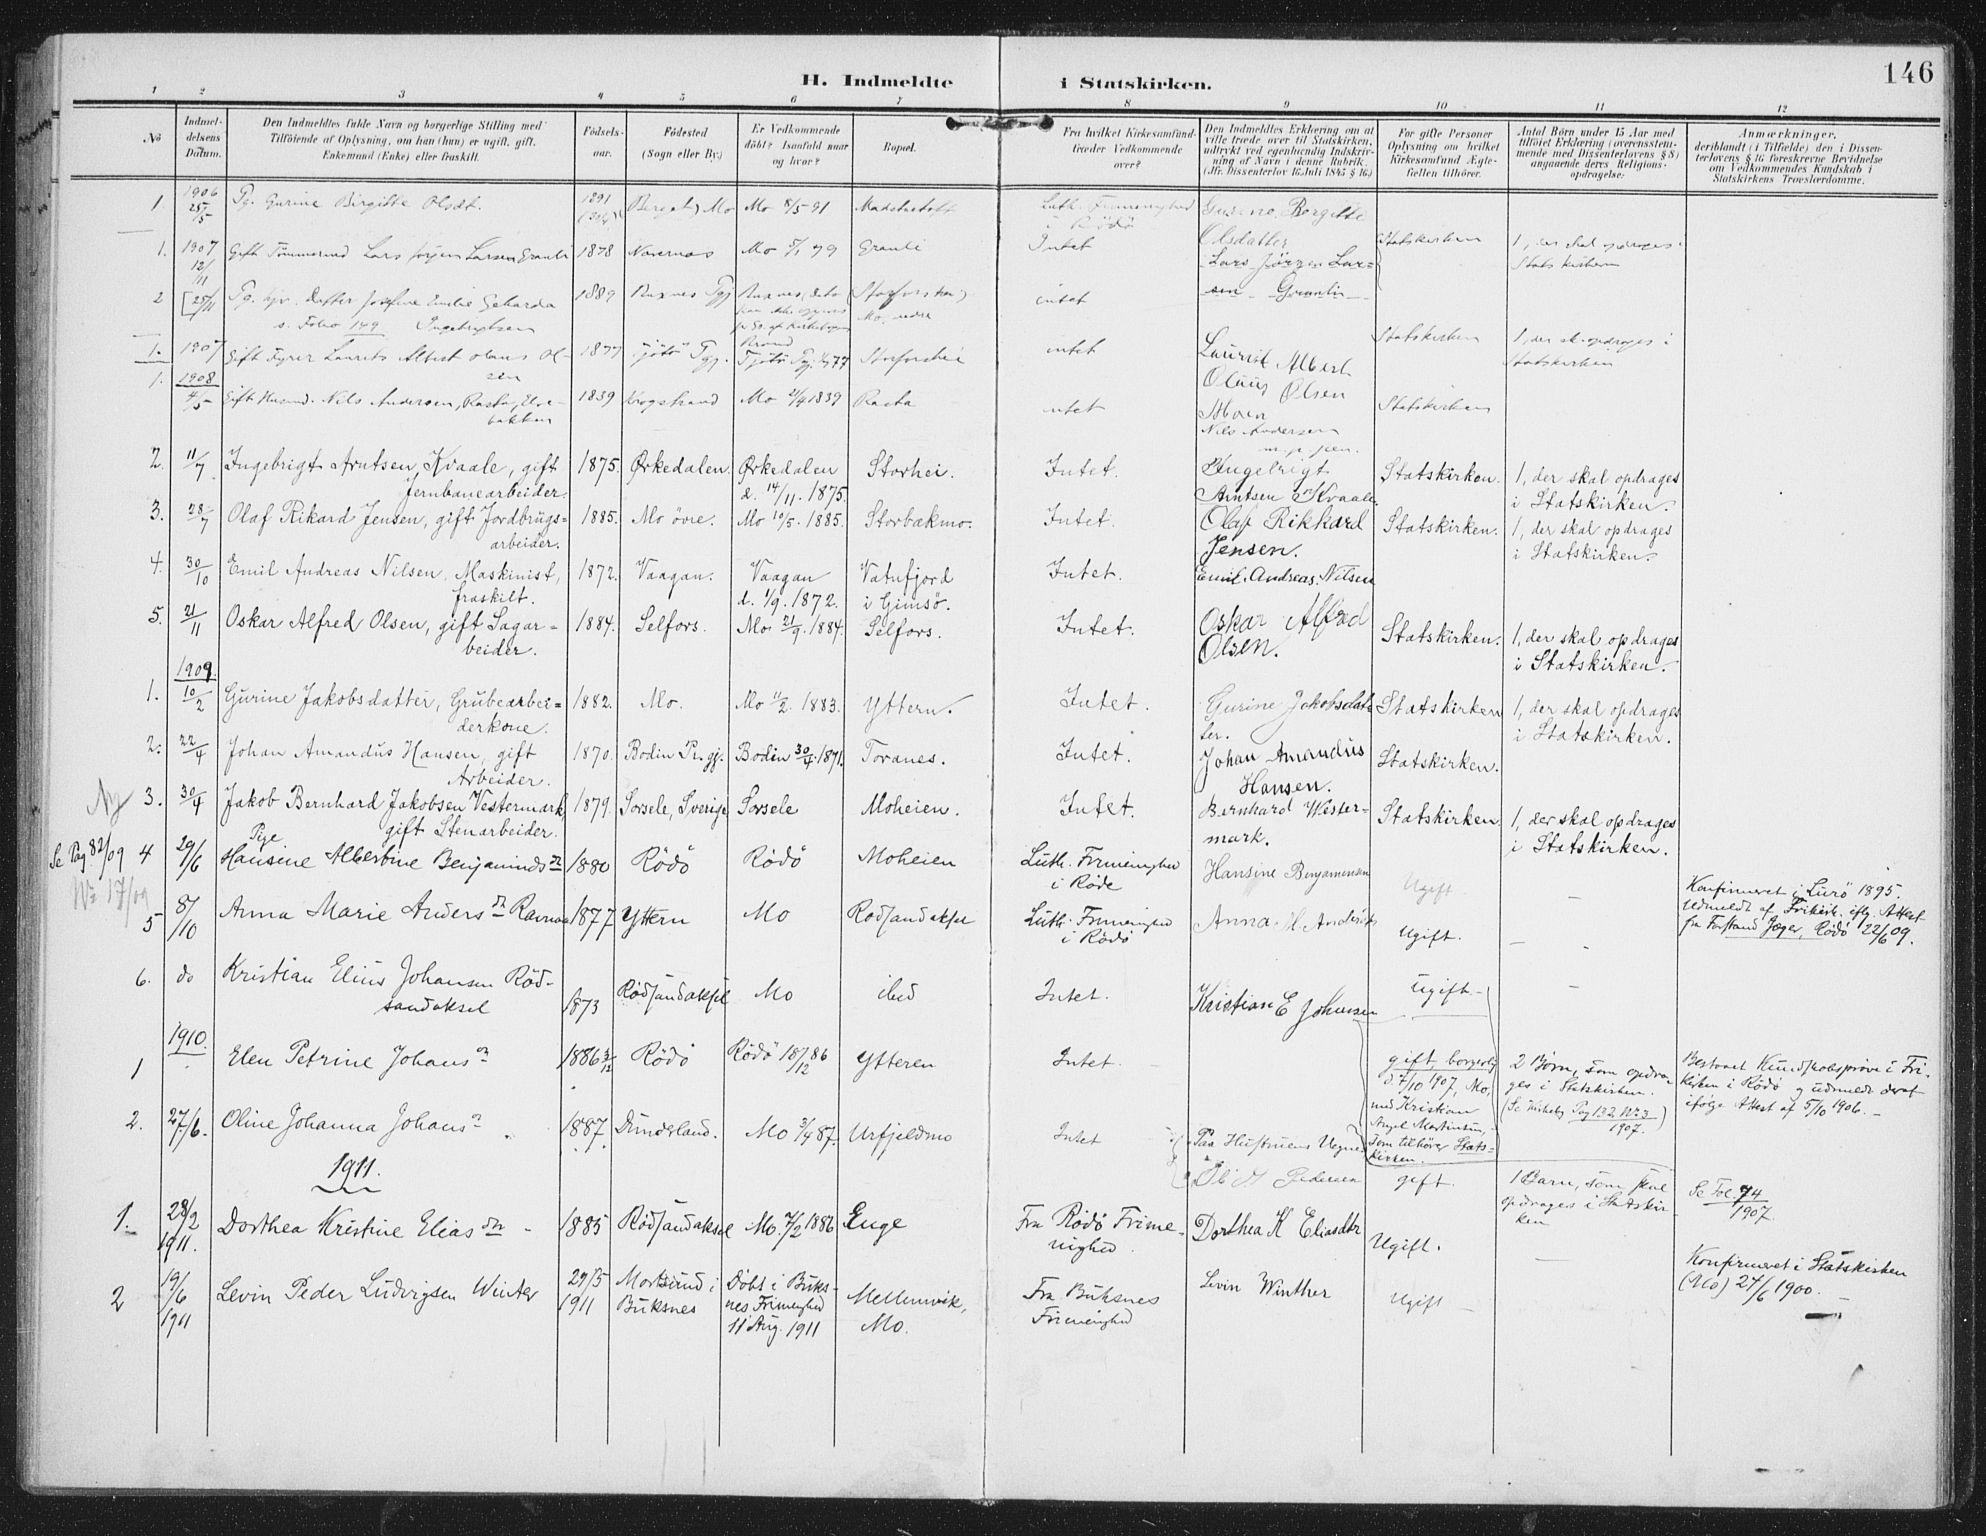 146
H. Indmeldte i Statskirken.
1 2 3 4 5 6 7 8 9 10 11 12
No
Indmel-
delsens
Datum.
Den Indmeldtes fulde Navn og borgerlige Stilling med
Tilföiende af Oplysning, om han (hun) er ugift, gift,
Enkemand (Enke) eller fraskilt.
Födsels-
aar.
Födested
(Sogn eller By.)
Er Vedkommende
döbt? Isaafald naar
og hvor?
Bopæl.
Fra hvilket Kirkesamfund
træder Vedkommende
over?
Den Indmeldtes Erklæring om at
ville træde over til Statskirken,
udtrykt ved egenhændig Indskriv-
ning af Navn i denne Rubrik.
(Jfr. Dissenterlov 16 Juli 1845 § 16.)
For gifte Personer
Oplysning om hvilket
Kirkesamfund Ægte-
fællen tilhörer.
Antal Börn under 15 Aar med
tilföiet Erklæring (overensstem-
mende med Dissenterlovens § 8)
angaaende deres Religions-
opdragelse:
Anmærkninger,
deriblandt (i Tilfælde) den i Dissen-
terlovens § 16 foreskrevne Bevidnelse
om Vedkommendes Kundskab i
Statskirkens Troeslærdomme.
1. 1906 25/5 Pg. Gurine Birgitte Olsdt. 1891 Mo Mo 8/5 91 Luth. Frimenighed
i Rödö
Gurine Birgitte
Olsdatter
1. 1907 12/11 Gift Tömmermd Lars Jörgen Larsen Granli 1878 Nævernæs Mo 5/1 79 Granli Intet
Lars Jörgen Lar=
sen Granli
Statskirken 1, der skal opdrages i
Statskirken
2 [25/11 Pg. Datter Josefine Emilie Geharda
s. Folio 149 Ingebrigtsen
1889 intet
1. 1907 Gift Fyrer Laurits Albert Olaus Ol-
sen
1877 Tjötö Pgj. Storforshei intet
Laurits Albert
Olaus Olsen
Statskirken 1, der sk. opdrages i
Statskirken
1908
1. 4/5 Gift Husmd. Nils Andersen, Rasta,
bakken
1839 Vogstrand Mo 21/4 1839 Rasta intet
Nils Andersen
m. p. pen.
Statskirken
2. 11/7 Ingebrigt Arntsen Kvaale, gift
Jernbanearbeider.
1875. Ørkedalen. Ørkedalen
d. 14/11. 1875.
Storhei. Intet. Ingebrigt
Arntsen Kvaale
Statskirken. 1, der skal opdrages
i Statskirken.
3. 28/7 Olaf Rikard Jensen, gift Jordbrugs=
arbeider.
1885. Mo övre. Mo 10/5. 1885. Storbakmo. Intet. Olaf Rikkard
Jensen.
Statskirken. 1, der skal opdrages
i Statskirken.
4. 30/10 Emil Andreas Nilsen, Maskinist,
fraskilt.
1872. Vaagan. Vaagan
d. 1/9. 1872.
Vatnfjord
i Gimsö.
Intet. Emil. Andreas. Nilsen
5. 21/11 Oskar Alfred Olsen, gift Sagar=
beider.
1884. Selfors. Mo. 21/9. 1884. Selfors. Intet. Oskar Alfred
Olsen.
Statskirken. 1, der skal opdrages
i Statskirken.
1909.
1. 10/2 Gurine Jakobsdatter, Grubearbei=
derkone.
1882. Mo. Mo 11/2. 1883. Yttern. Intet. Gurine Jakobsdat=
ter.
Statskirken 1, der skal opdrages
i Statskirken.
2. 22/4 Johan Amandus Hansen, gift
Arbeider.
1870. Bodin Pr. gj. Bodin 30/4. 1871. Toranes. Intet. Johan Amandus
Hansen.
Statskirken.
3. 30/4 Jakob Bernhard Jakobsen Vestermark,
gift Stenarbeider.
1879. Sorsele, Sverige Sorsele Moheien. Intet. Bernhard Wester=
mark.
Statskirken 1, der skal opdrages
i Statskirken.
Se Pag 82/09
No 17/09
4 29/6 Pige
Hansine Albertine Benjaminsdr 1880 Rödö Rödö Moheien Luth. Frimenighed
i Röde
Hansine Benjamensen Ugift –
Konfirmeret i Lurö 1895.
Udmeldt af Frikirk. iflg. Attest
fra Forstand. Jæger, Rödö 22/6 09.
5 8/10 Anna Marie Andersdr Ravnaa 1877 Yttern Mo Rödsandaksel Luth. Frimenighed
i Rödö
Anna M. Andersen Ugift. –
6. do Kristian Elius Johansen Röd-
sandaksel
1873 Rödsandaksel Mo ibid Intet. Kristian E Johansen Ugift. –
1910.
1 Elen Petrine Johansdr 1886 3/12 Rödö Rödö 18 7/12 86 Ytteren Intet.
gift, borgerlig
d. 7/10 1907, Mo,
med Kristian
Angel Martinsen,
som tilhörer Stats-
kirken.
2 Börn, som opdra
ges i Statskirken.
(Se Kirkeb. Pag 132 No 3
1907.
Bestaaet Kundskabspröve i Fri-
kirken i Rödö og udmeldt deraf
ifölge Attest af 5/10 1906. –
2. 27/6. Oline Johanna Johansdr 1887. Dunderland. Mo 3/4 87. Urfjeldmo Intet Paa Hustruens Vegne
Pedersen
gift. 1 Barn, som skal
opdrages i Statskir-
ken
Se Fol. 74
1907.
1911.
1. 28/2 1911. Dorthea Kristine Eliasdr - 1885 Rödsandaksel Mo. 7/2 1886 Enge Fra Rödö Frime-
nighed.
Dorthea K Eliasdtr Ugift. –
Konfirmeret i Statskirken
(Mo) 24/6 1900. –
2 19/6 1911 Levin Peder Ludvigsen Winter 29/5
1911
Mortsund i
Buksnes
Döbt i Buks-
nes Frimenighed
11 Aug. 1911
Mellemvik,
Mo.
Fra Buksnes
Frimenighed
Levin Winther Ugift –